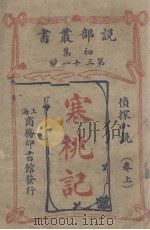 說部叢書
初集
第三十一編
偵探小說
(卷上)
寒桃記
上海
商務印書館發行